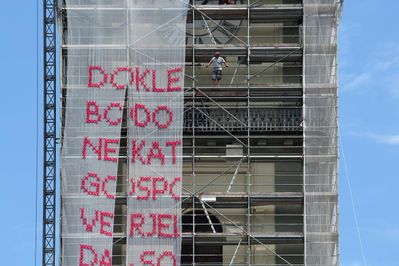 DOKLE
BODO
NEKAT
GOSPO
VERJEL
DA SO